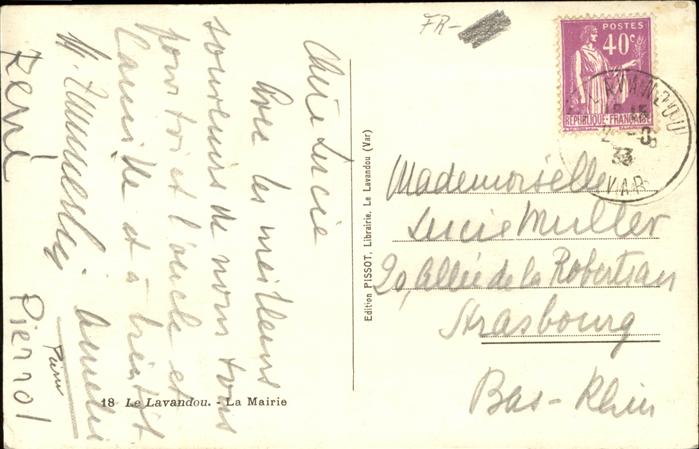 FR-
POSTES
40c
REPUBLIQUE-FRANÇAISE
LE LAVANDOU
33
VAR
Chère Lucie
Avec les meilleurs
souvenirs de nous tous
pour toi et l'oncle et
Camille et à bientôt
Amélie
René
Pierrot
Edition PISSOT, Librairie, Le Lavandou (Var)
Mademoiselle
Lucie Muller
20, Allée de la Robertsau
Strasbourg
Bas-Rhin
18 Le Lavandou. - La Mairie